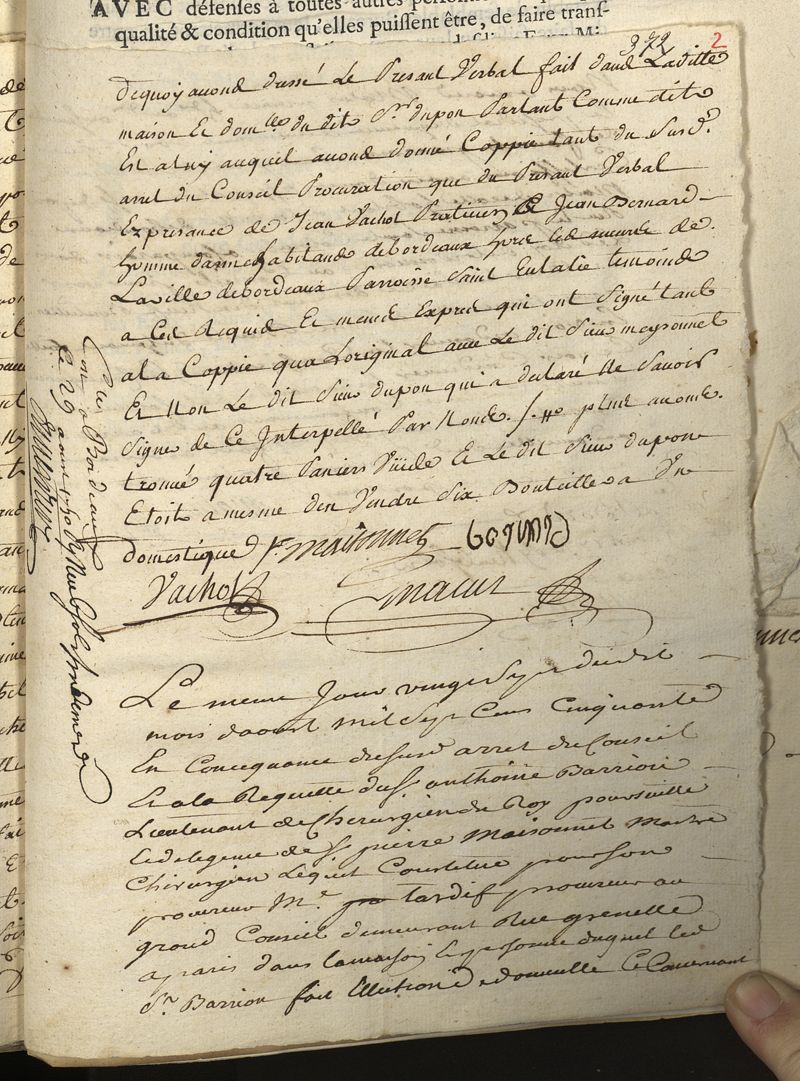 AVEC défenses à toutes autres
qualité & condition qu'elles puissent être, de faire transf-
379 2
dequoy avons dressé Le Presant Verbal fait dans Laditte
maison Et dom.lle du dit S.r dupon Parlant Comme dit
Est a luy auquel avons donné Coppie tant du Susd.t
arret du Conseil Procuration que du Presant Verbal
En presance de Jean Vachot Praticien Et Jean Bernard
homme darmes habitands debordeaux
Laville debordeaux Parroisse Saint Eulalie temoins
a Ces Requis Et menés Exprés qui ont Signé tant
a la Coppie qua Loriginal avec Le dit Sieur meysonnet
Et Non Le dit Sieur dupon qui a declaré Ne Savoir
Signe de Ce Interpellé Par Nous. plus avons
trouvé quatre Paniers Vuide Et Le dit Sieur dupon
Etoit a mesme den Vendre Six Bouteilles a Un
domestique maisonnet Bernard
Vachot
Con.lle a Bordeaux
Le 29 aoust 1750
Le meme Jour vingt Sept dudit
mois daoust Mil Sept Cens Cinquante
En Concequance dususd arret du Conseil
Et a la Requette du S.r anthoine Barrion
Lieutenant de Cherurgien du Roy poursuitte
et delegence de S.r pierre Maisonnet Maitre
Chirurgien Lequel Constitue pour son
procureur M.e tardif procureur au
grand Conseil demeurant Rue grenelle
a paris dans la maison Et personne duquel led
S.r Barrion fait Ellection de domicille Et Concernant